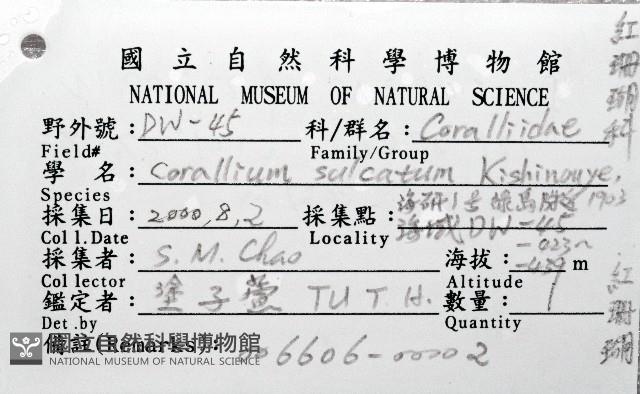 國立自然科學博物館
NATIONAL MUSEUM OF NATURAL SCIENCE
野外號：DW-45 科/群名：Coralliidae
Field# Family/Group
學名：Corallium sulcatum Kishinouye, 1903
Species
採集日：2000,8,2 採集點：海研1號 綠島附近海域DW-45
Coll.Date Locality
採集者：S. M. Chao 海拔： m
Collector Altitude
鑑定者：塗子萱 TU T. H. 數量：1
Det.by Quantity
備註(Remarks)：006606-00002
國立自然科學博物館
NATIONAL MUSEUM OF NATURAL SCIENCE
紅珊瑚科
紅珊瑚